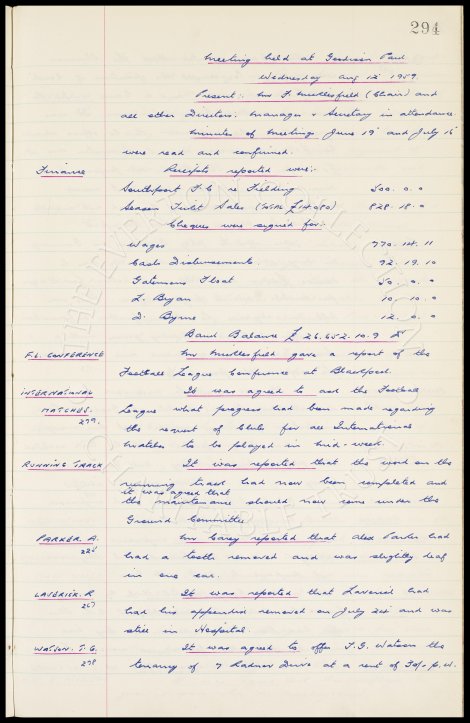 294
Meeting held at Goodison Park
Wednesday Aug 12th 1959.
Present: Mr F. Micklesfield (Chair) and
all other Directors. Manager & Secretary in attendance
Minutes of Meetings June 19th and July 15th
were read and confirmed.
Finance Receipts reported were:-
Southport F.C. re Fielding 500. 0. 0
Season Ticket Sales (Total £14,080) 828. 18. 0
Cheques were signed for:-
Wages 770. 14. 11
Cash Disbursements. 92. 19. 10
Gatemens Float 50. 0. 0
L. Bryan 10. 10. 0
D. Byrne 12. 0. 0
Bank Balance £ 26.652.10.9
F.L. CONFERENCE Mr Micklesfield gave a report of the
Football League Conference at Blackpool.
INTERNATIONAL It was agreed to ask the Football
MATCHES. League what progress had been made regarding
279. the request of Clubs for all International
matches to be played in mid-week.
RUNNING TRACK It was reported that the work on the
running track had now been completed and
it was agreed that
the maintenance should now come under the
Ground Committee
PARKER. A. Mr Carey reported that Alex Parker had
had a tooth removed and was slightly deaf
in one ear.
LAVERICK. R It was reported that Laverick had
267 had his appendix removed on July and was
still in Hospital.
WATSON. T.G. It was agreed to offer T.G. Watson the
278 tenancy of 7 Radnor Drive at a rent of 30/- p.w.
THE EVERTON COLLECTION